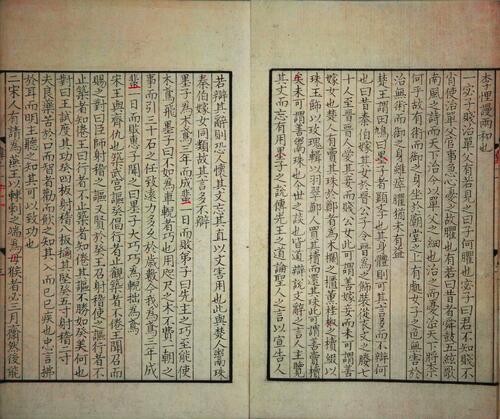 李悝謾兩和也
一宓子賤治單父有若見之曰子何臞也宓子曰君不知賤不
肖使治單父官事急心憂之故臞也有若曰昔者舜鼓五絃歌
南風之詩而天下治今以單父之細也治之而憂治天下將柰
何乎故有術而御之身坐於廟堂之上有處女子之色無害於
治無術而御之身雖瘁臞猶未有益
楚王謂田鳩曰墨子者顯學也其身體則可其言多而不辯何
也曰昔秦伯嫁其女於晉公子令晉為之飾裝從衣文之媵七
十人至晉晉人愛其妾而賤公女此可謂善嫁妾而未可謂善
嫁女也楚人有賣其珠於鄭者為木蘭之櫝薰桂椒之櫝綴以
珠玉飾以玫瑰輯以羽翠鄭人買其櫝而還其珠此可謂善賣櫝
矣未可謂善鬻珠也今世之談也皆道辯說文辭之言人主覽
其文而忘有用墨子之說傳先王之道論聖人之言以宣告人
若辯其辭則恐人懷其文忘其直以文害用也此與楚人鬻珠
秦伯嫁女同類故其言多不辯
墨子為木鳶三年而成蜚一日而敗弟子曰先生之巧至能使
木鳶飛墨子曰不如為車輗者巧也用咫尺之木不費一朝之
事而引三十石之任致遠力多久於歲數今我為鳶三年成
蜚一日而敗惠子聞之曰墨子大巧巧為輗拙為鳶
宋王與齊仇也築武宮謳癸倡行者止觀築者不倦王聞召而
賜之對曰臣師射稽之謳又賢於癸王召射稽使之謳行者不
止築者知倦王曰行者不止築者知倦其謳不勝如癸美何也
對曰王試度其功癸四板射稽八板擿其堅癸五寸射稽二寸
夫良藥苦於口而智者勸而飲之知其入而已己疾也忠言拂
於耳而明主聽之知其可以致功也
二宋人有請為燕王以棘刺之端為母猴者必三月齋然後能